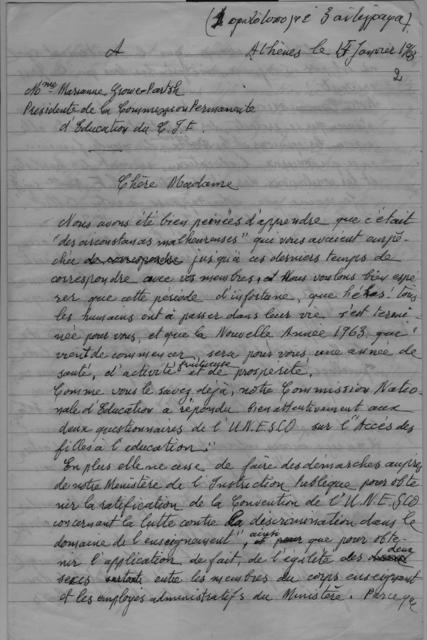 Athènes le 15 Janvier 1963
2
A
Mme Marianne Growe-Partsh
Présidente de la Commission Permanente
d'Education du C.I.F.
Chère Madame
Nous avons été bien peinées d'apprendre que c'était
"des circonstances malheureuses" que vous avaient empê-
chée de correspondre jusqu'à ces derniers temps de
correspondre avec vos membres, et Nous voulons bien espé-
rer que cette période d'infortune, que hélas! tous
les humains ont à passer dans leur vie, s'est termi-
née pour vous, et que la Nouvelle Année 1963, qui
vient de commencer, sera pour vous une année de
santé, d'activité fructueuse et de prosperité.
Comme vous le savez déjà, notre Commission Natio-
nale d'Education à répondu bien attentivement aux
deux questionnaires de l'U.N.E.S.C.O sur l'"Accès des
filles à l'education".
En plus elle ne cesse de faire des demarches auprès
de notre Ministère de l'Instruction Publique pour obte-
nir la ratification de la Convention de l'U.N.E.S.C.O
concernant la lutte contre la discrimination dans le
domaine de l'enseignement" ainsi que pour obte-
nir l'application de fait, de l'égalité des deux
sexes surtout entre les membres du corps enseignant
et les employés administratifs du Ministère. Parce que